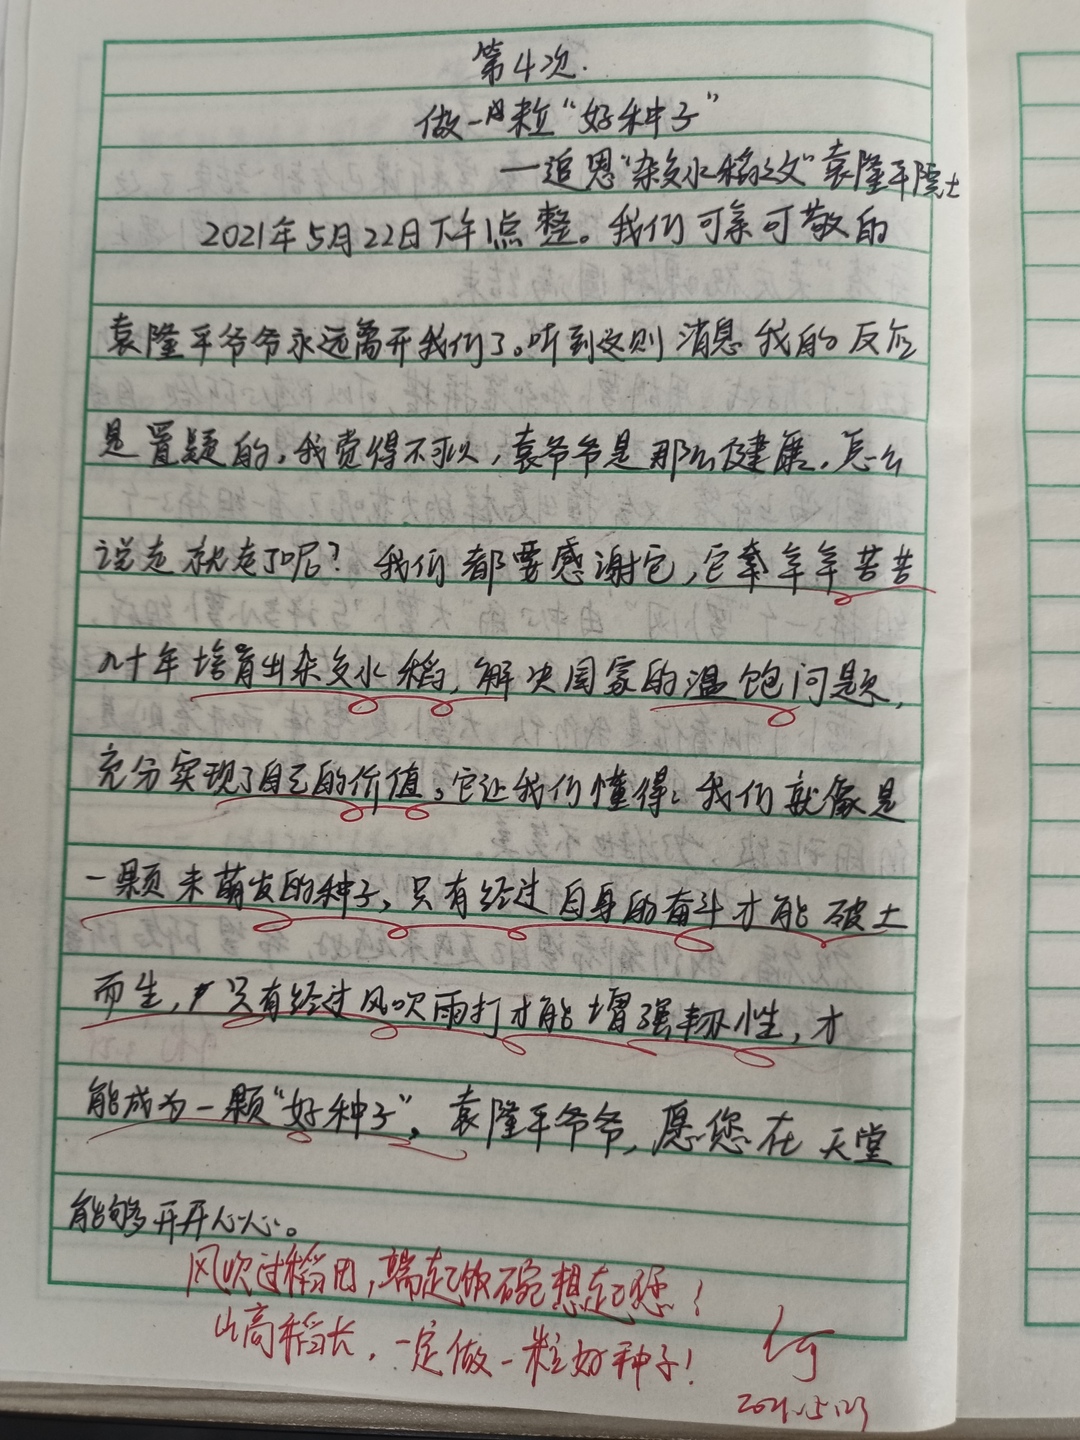 第4次.
做一粒“好种子”
—追思“杂交水稻之父”袁隆平院士
2021年5月22日下午1点整。我们可亲可敬的
袁隆平爷爷永远离开我们了。听到这则消息我的反应
是置疑的，我觉得不可以，袁爷爷是那么健康，怎么
说走就走了呢？我们都要感谢它，它辛辛苦苦
九十年培育出杂交水稻，解决国家的温饱问题，
充分实现了自己的价值。它让我们懂得：我们就像是
一颗未萌发的种子，只有经过自身的奋斗才能破土
而生，只有经过风吹雨打才能增强韧性，才
能成为一颗“好种子”，袁隆平爷爷，愿您在天堂
能够开开心心。
风吹过稻田，端起饭碗想起您！
山高稻长，一定做一粒好种子！
何
2021.5.23